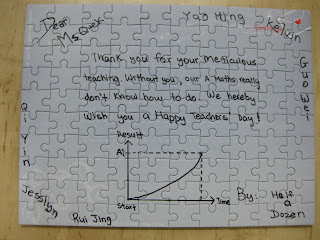 Dear
Ms. Quek
Yao Ming
Kelvin
Guo Wei
Thank you for your meticulous
teaching. Without you, our A Maths really
don't know how to do. We hereby
wish you a Happy Teachers' Day!
Qi Yin
Result
A1
Start
Time
By: Half
a
Dozen
Jesslyn
Rui Jing